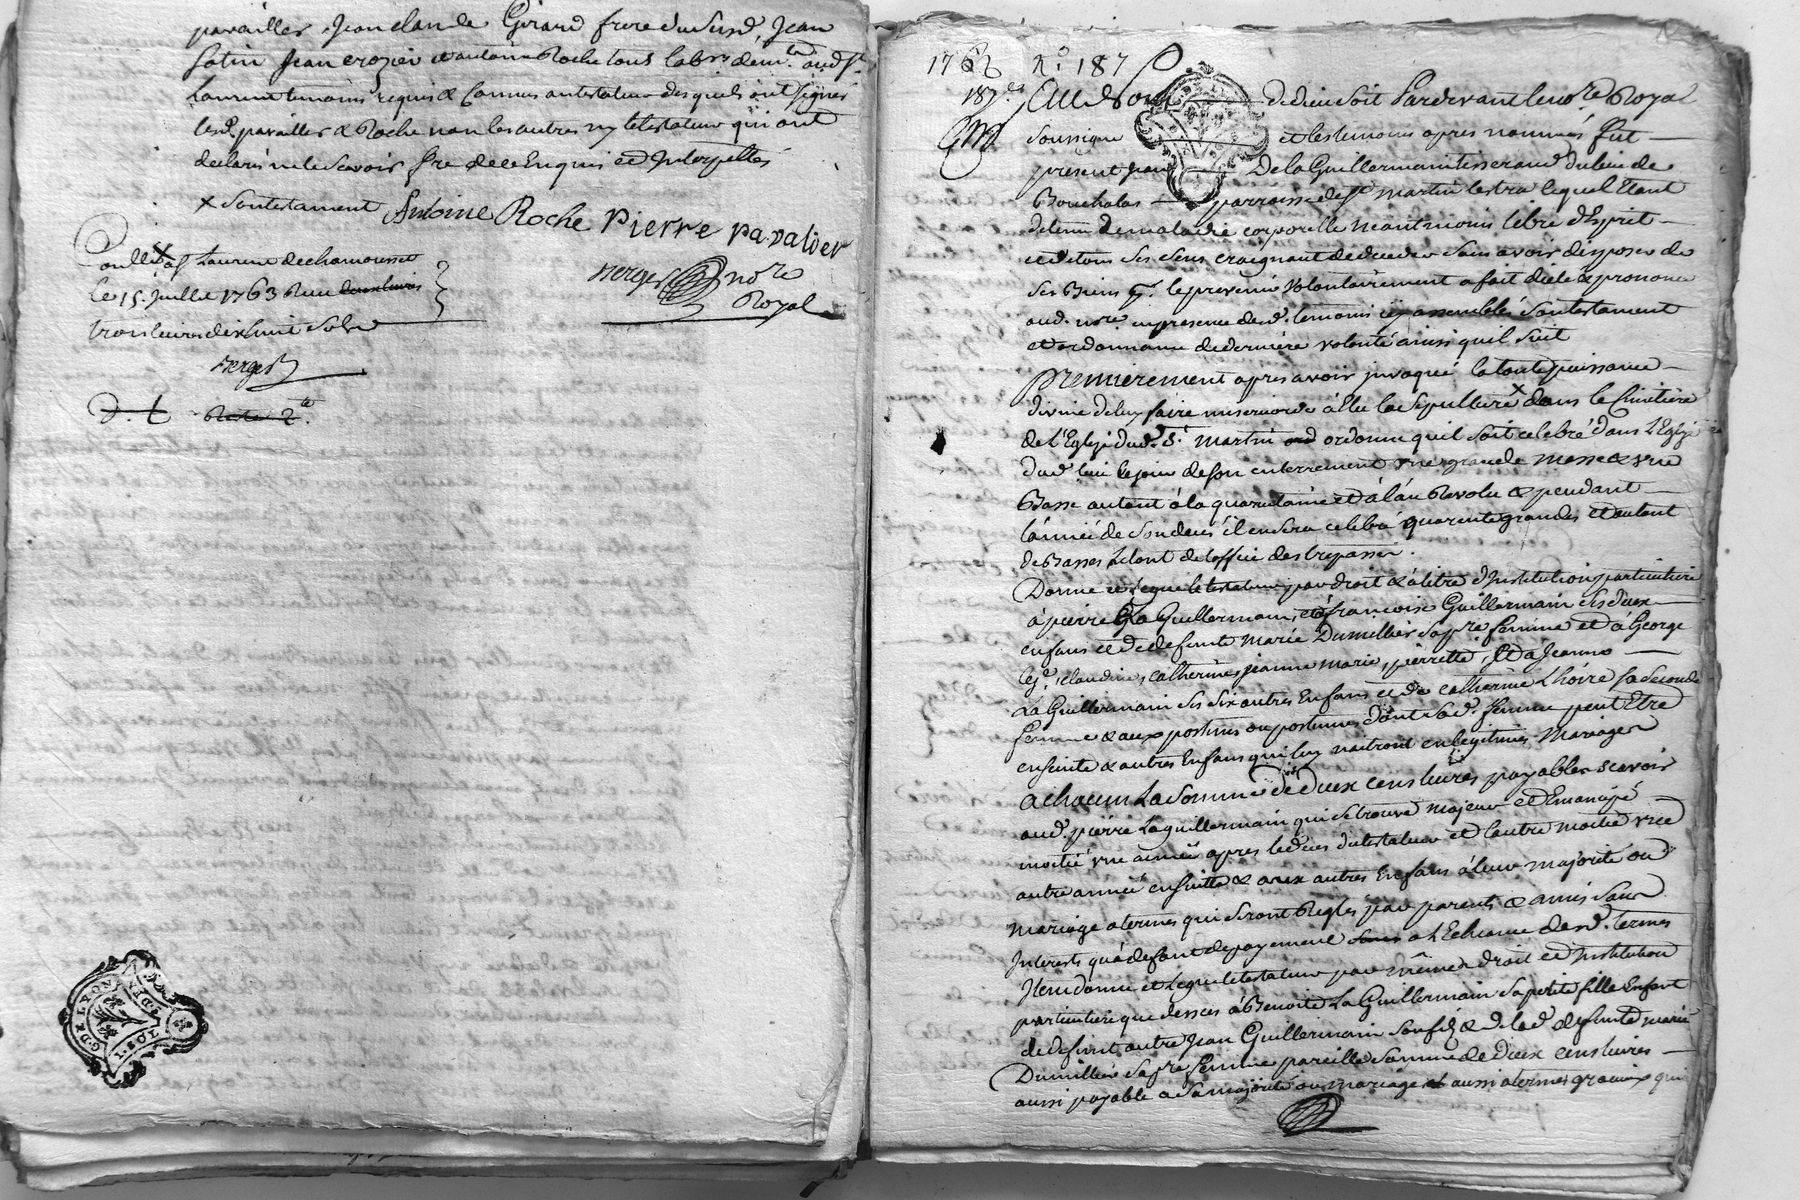 pavailler, Jean claude Girard frere dud. Jean
Satin Jean crozier et antoine Roche tous lab.rs dem.t aud. St
Laurent temoins requis & Connus au testateur desquels ont signés
lesd. pavailler & Roche non les autres ny le testateur qui ont
declarés ne le sçavoir fre de ce Enquis et Interpellés
x Son testament Antoine Roche pierre pavalier
Conllé a St Laurent de chamousset
le 15. Juillet 1763 Reçu deux livres
trois livres dix huit sols
Berger nore
Royal
Berger
G. DE LYON
1. SOL
1762 N.o 187
187.e Au Nom de dieu Soit Pardevant le nore Royal
Soussigné et les temoins apres nommés fut
présent Jean De la Guillermain tisserand du lieu de
Bouchalas parroisse de St Martin lestra lequel Etant
detenu de maladie corporelle neantmoins libre d'Esprit
et de tous ses sens craignant de deceder sans avoir disposer de
ses Biens pr. le prevenir volontairement a fait dicté & prononcé
aud. nore. en presence desd. temoins icy assemblés Son testament
et ordonnance de derniére volonté ainsi quil suit
Premierement apres avoir invoqué la toute puissance
divine de luy faire misericorde à Elu la Sepulture x dans le Cimitière
de L'Eglise dud. St. Martin aud ordonne quil soit celebré dans L'Eglise
dud. lieu le jour de son enterrement une grande Messe & une
Basse autant à la quarantaine et à l'an Revolu & pendant
l'année de son decés il en sera celebré quarente grandes et autant
de Basses le tout de l'office des trepassés.
Donne et Legue le testateur par droit & à titre d'Institution particuliére
à pierre La Guillermain, et à françoise Guillermain ses deux
enfans et de defunte Marie Dumillier sa pre. femme et à George
claudine, catherine, jeanne marie, pierrette, Et à Jeanne
La Guillermain ses six autres Enfans et de catherine Lhoire sa seconde
femme & aux postumes ou postumes dont sad. femme peut Etre
enseinte & autres Enfans qui luy naitront en legitime Mariage
a chacun La Somme de Deux cens livres payables scavoir
aud. pierre Laguillermain qui se trouve majeur et Emancipé
moitié une année apres le decés du testateur et l'autre moitié une
autre année ensuitte & aux autres Enfans à leur majorité ou
mariage a termes qui seront Reglés par parents & amis sans
Interests qu'à defaut de payement a L'Echeance desd. termes
Item donne et legue le testateur par même droit et Institution
particuliére que dessus à Benoite La Guillermain sa petite fille Enfant
de defunt autre Jean Guillermain son fils & de lad. defunte Marie
Dumillier sa pre femme pareille Somme de deux cens livres
aussi payable a sa majorité ou mariage et aussi a termes gracieux qui